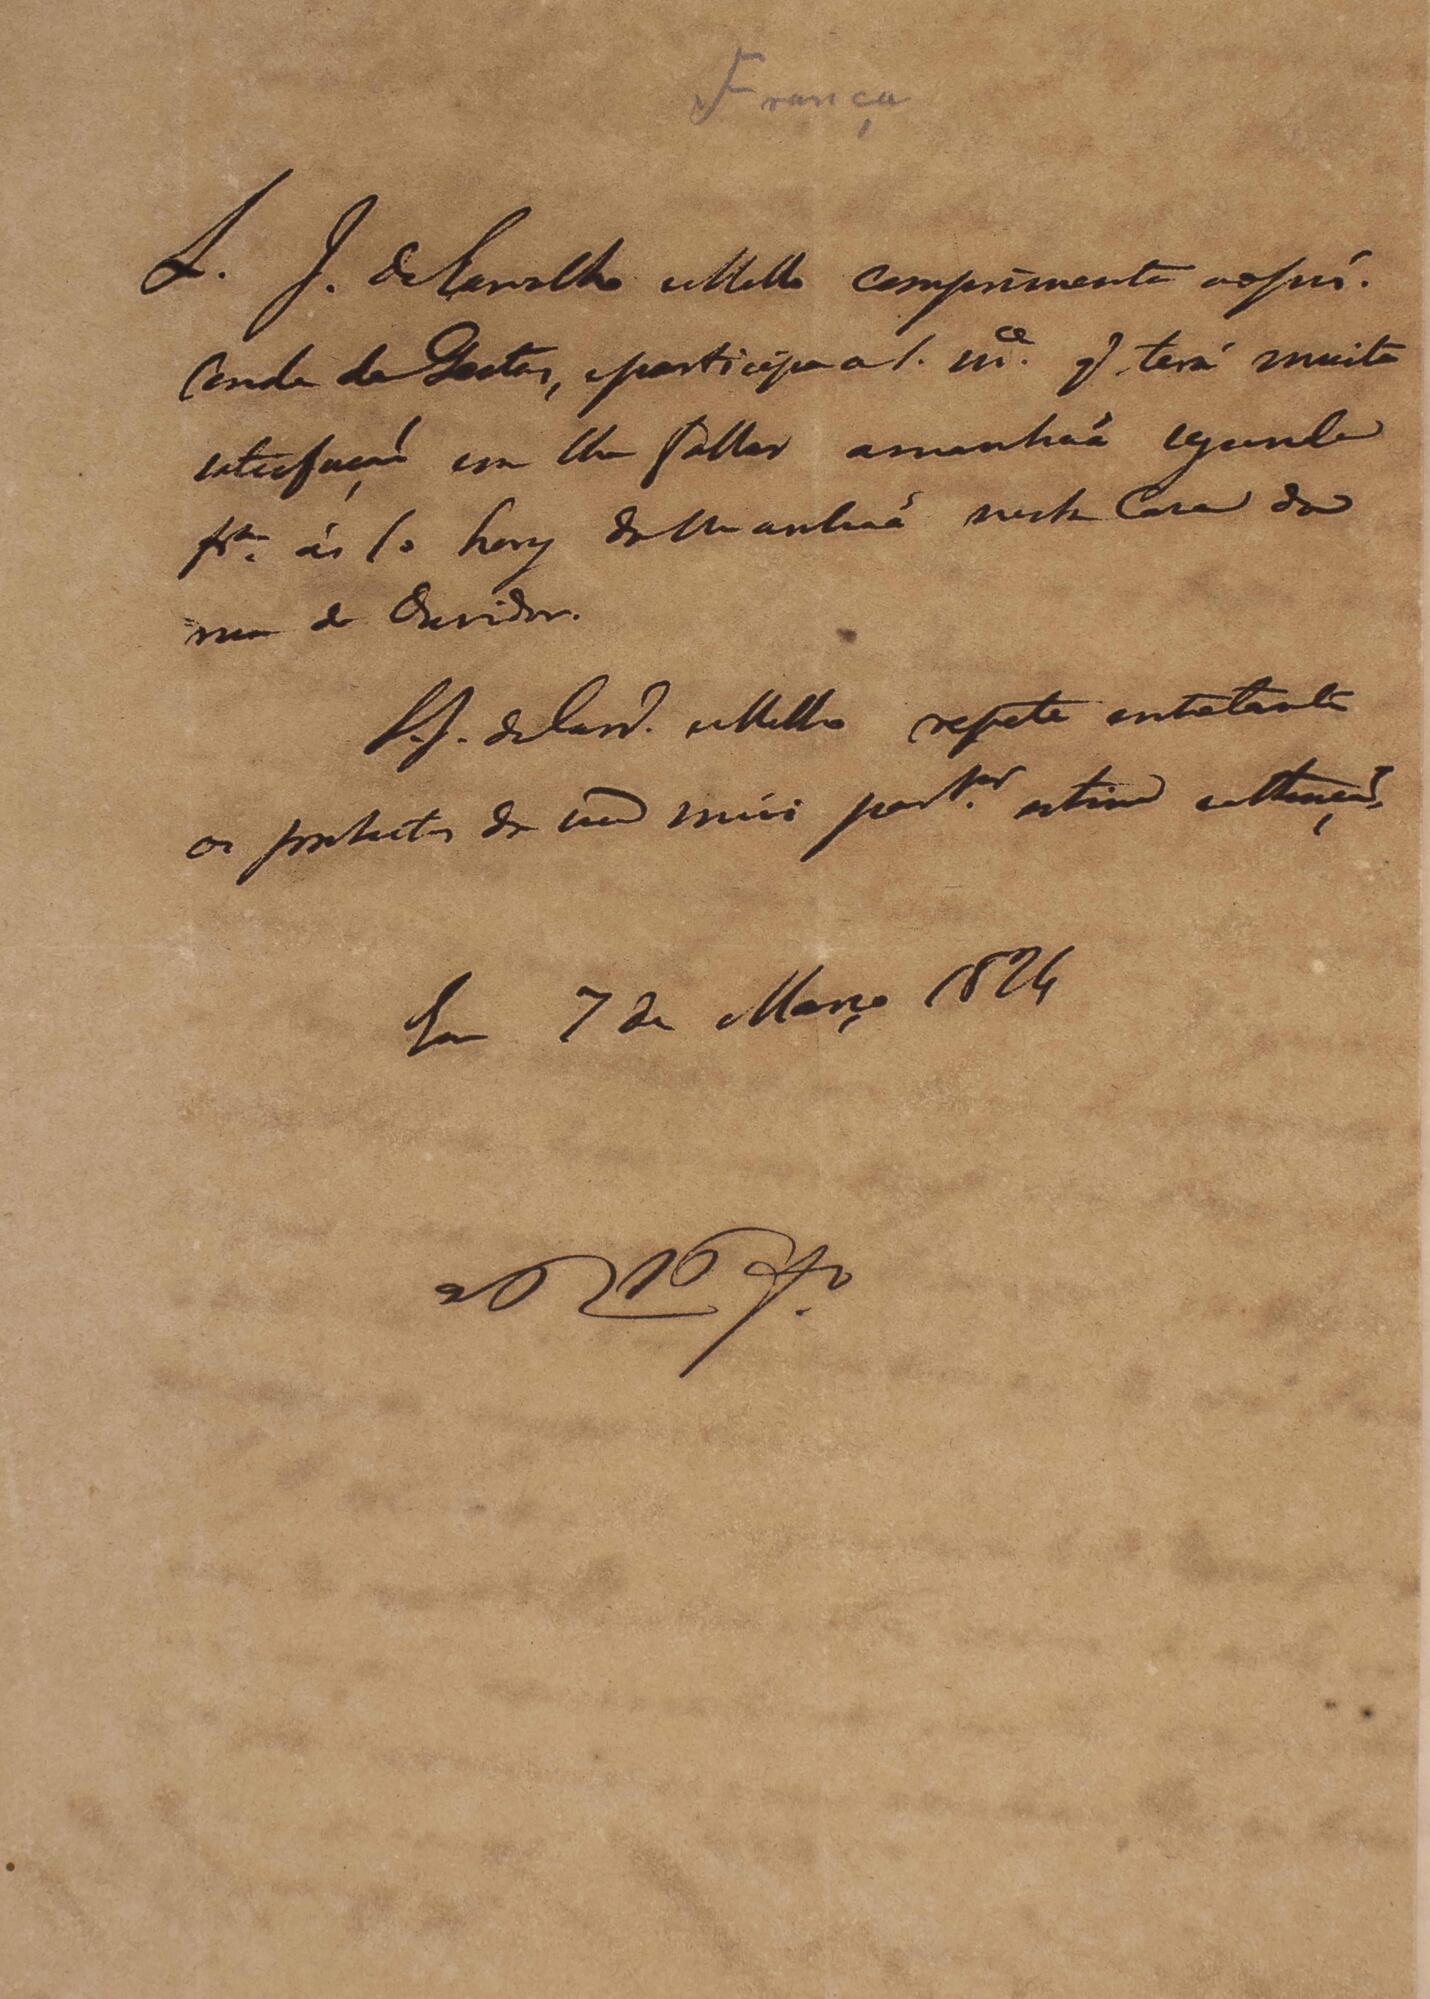 França
L. J. de Carvalho e Mello comprimenta ao Snr.
Conde de Gestas, e participa a S. m.ce q terá muita
satisfação em lhe fallar amanhaã segunda
fra. ás 10 horas da Manhaã nesta Casa da
rua do Ouvidor.
L. J. de Carv. e Mello repete entretanto
os protestos da sua mui part.ar estima e attenção,
Em 7 de Março 1824